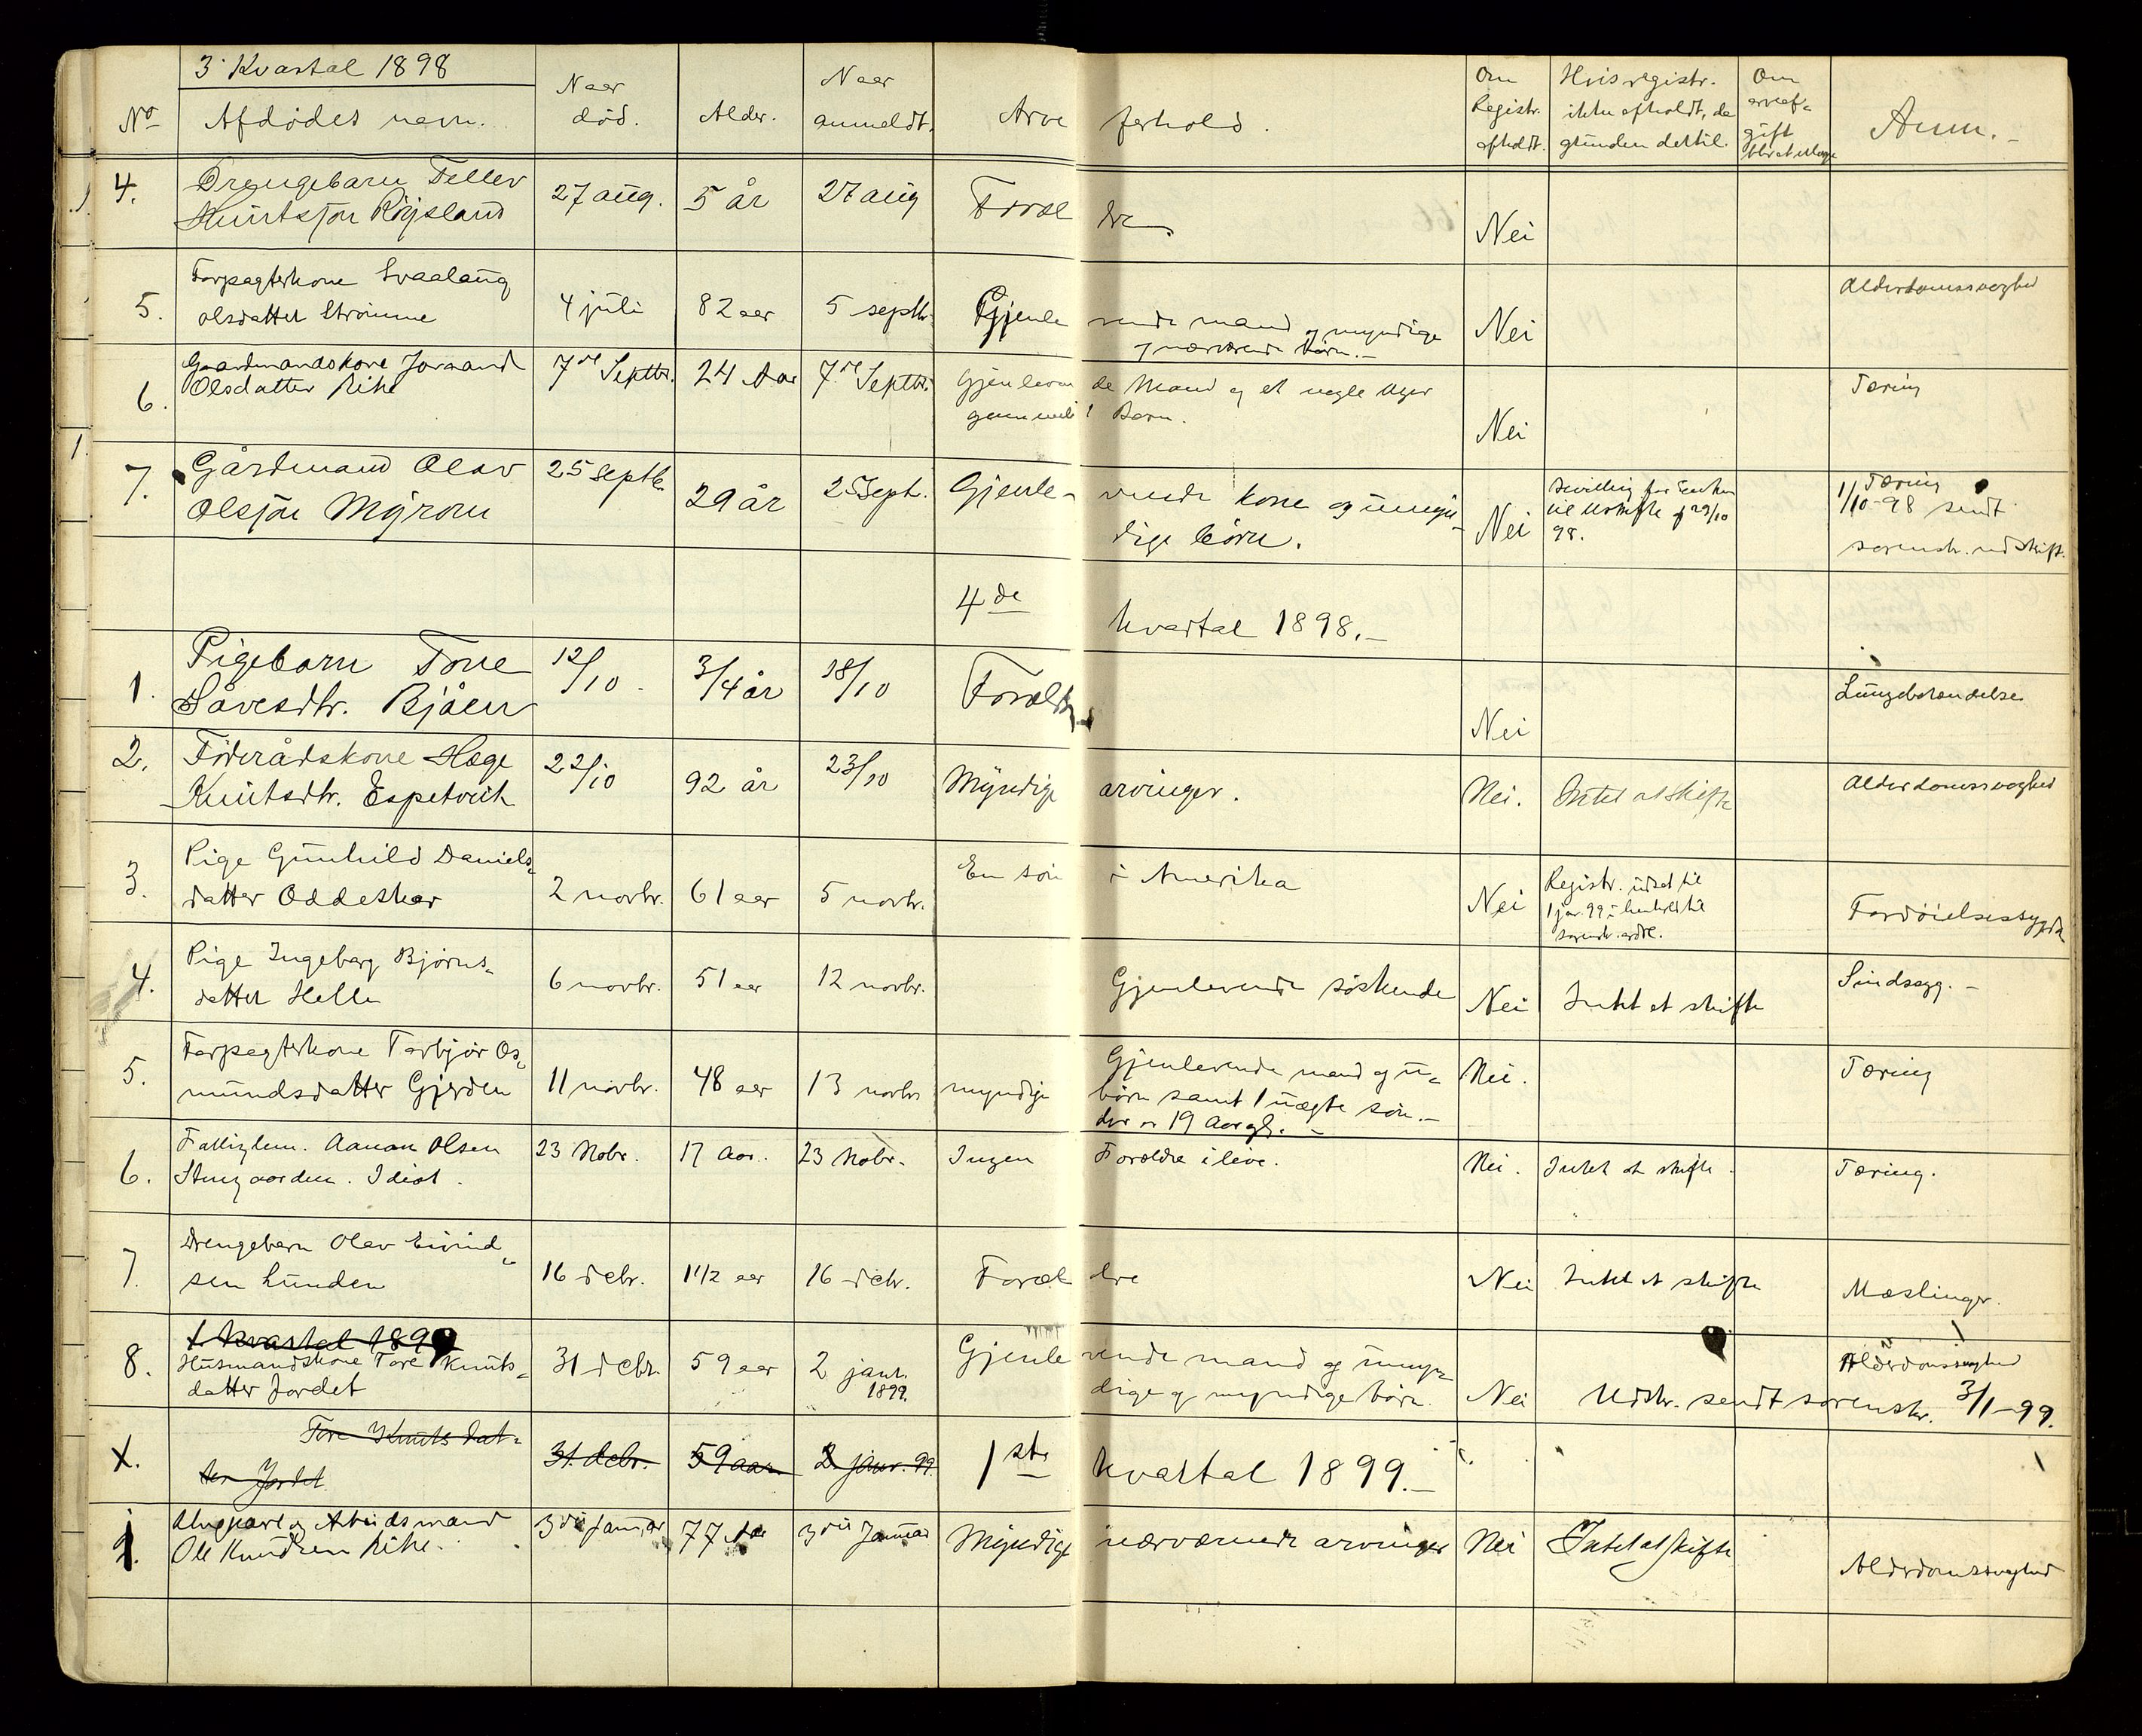 3. Kvartal 1898
No
Afdødes navn.
Naar død.
Alder.
Naar anmeldt.
Arveforhold.
Om Registr. afholdt.
Hvis registr. ikke afholdt, da grunden dertil.
Om arveaf-
gift
Anm.
4. Drengebarn Tellev
Knutssøn Rysland
27 aug. 5 år 27 aug Forældre. Nei
5. Forpagterkone Svaalaug
Olsdatter Strømme
4 juli 82 aar 5 septbr. Gjenlevende mand og myndige
nærværende børn.—
Nei Alderdomssvaghed
6. Gaardmandskone Joraand
Olsdatter Rike
7de Septbr. 24 Aar 7de Septbr. Gjenlevende Mand og et nogle Uger
gammelt Barn.
Nei Tæring
7. Gårdmand Olav
Olsføn Myrom
25 septb. 29 år 25 Sept. Gjenlevende kone og umyn-
dige børn.
Nei
Bevilling for Enken
til Uskifte af 29/10
98.
Tæring
1/10-98 sendt
sorenskr. udskrift.
4de kvartal 1898.—
1. Pigebarn Tone
Såvesdtr. Bjåen
12/10. 3/4 år 18/10 Forældre Nei Lungebetændelse
2. Føderådskone Hæge
Knutsdtr. Espetveit
22/10 92 år 23/10 Myndige arvinger. Nei. Intet at skifte Alderdomssvaghed
3. Pige Gunhild Daniels-
datter Oddeskar
2 novbr. 61 aar 5 novbr. En søn i Amerika Nei
Registr. udsat til
1 jan. 99 i henhold til
sorenskr. ordre.
Fordøielsessygd
4. Pige Ingeborg Bjørns-
datter Helle
6 novbr. 51 aar 12 novbr. Gjenlevende søskende Nei Intet at skifte Sindssyg.—
5. Forpagterkone Torbjør Os-
mundsdatter Gjerden
11 novbr. 48 aar 13 novbr. Gjenlevende mand og u-
myndige børn samt 1 uægte søn.—
der er 19 Aar gl.—
Nei. Tæring
6. Fattiglem. Aanon Olsen
Stengaarden. Idiot.
23 Nobr. 17 Aar. 23 Nobr. Ingen Forældre i live. Nei. Intet at skifte. Tæring.
7. Drengebarn Olav Eivind-
sen Lunden
16 decbr. 1 1/2 aar 16 decbr. Forældre Nei Intet at skifte Mæslinger.
1 kvartal 1899
8. Husmandskone Tore Knuts-
datter Jordet
31 decbr. 59 aar 2 janr. 1899. Gjenlevende mand og umyn-
dige og myndige børn.
Nei Udskr. sendt sorenskr. 3/1-99.
Alderdomssvaghed
X. Tore Knuts dat-
ter Jordet
31. decbr. 59 aar. 2 janr. 99.
1ste kvartal 1899.—
1. Ungkarl og Arbeidsmand
Ole Knudsen Rike.
3die Januar 77 Aar 3die Januar Myndige nærværende arvinger Nei Intet at skifte Alderdomssvaghed